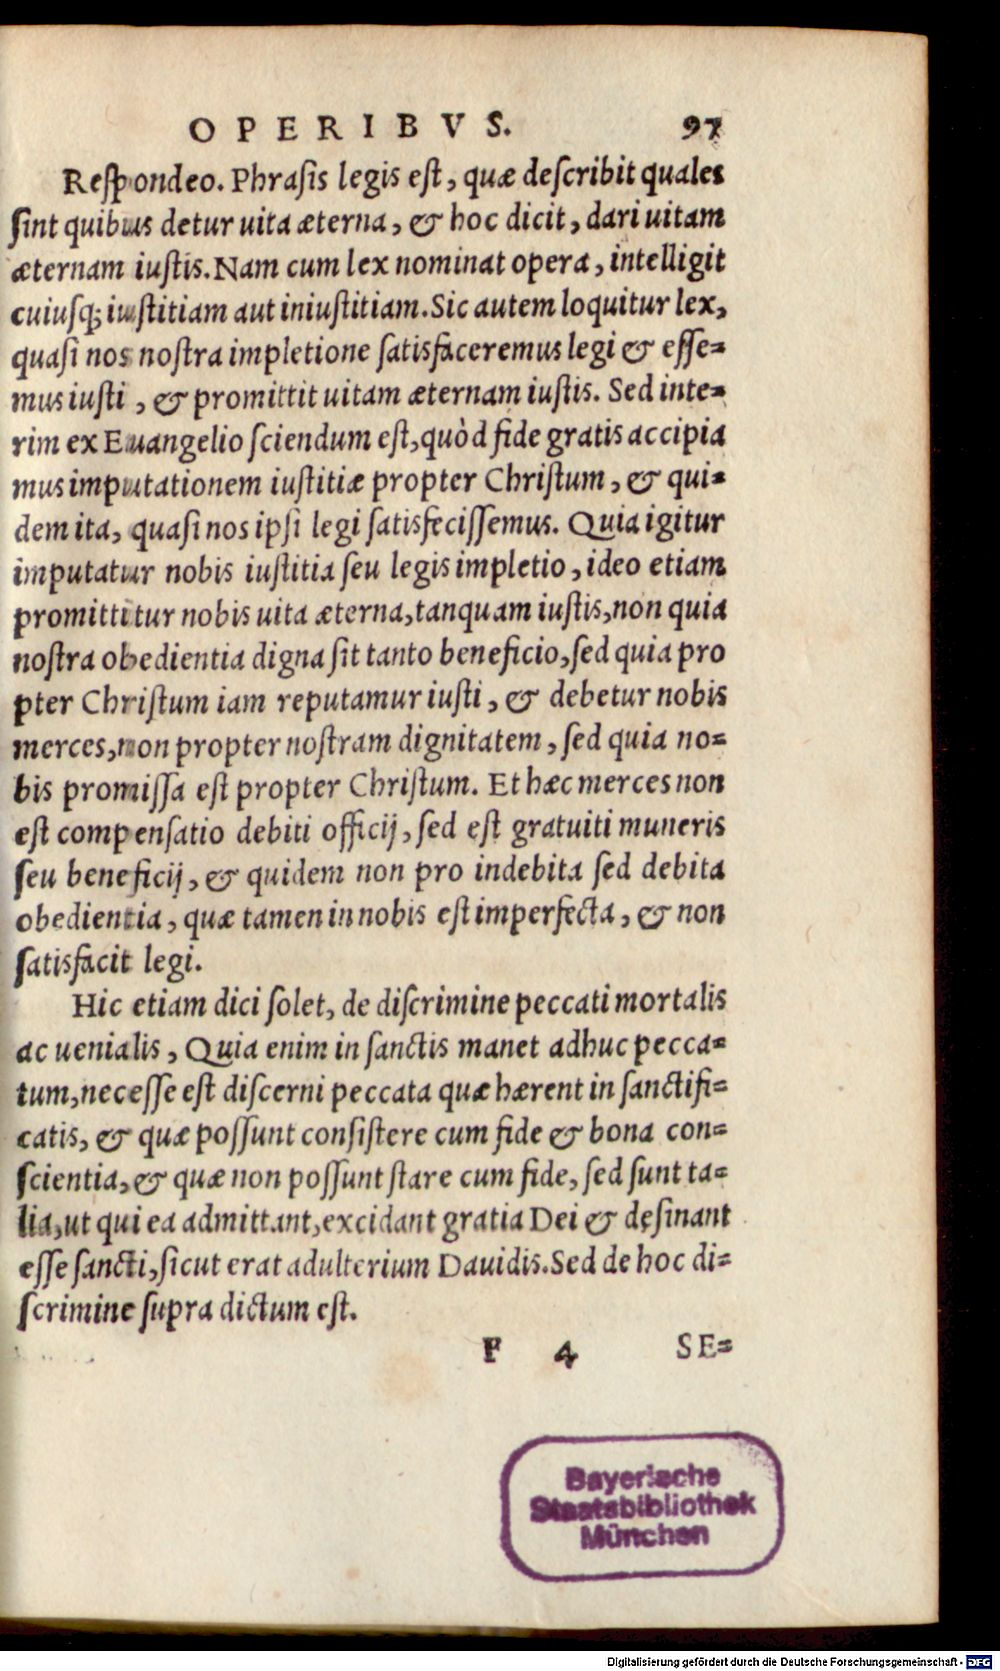 OPERIBVS. 97
Respondeo. Phrasis legis est, quæ describit quales
sint quibus detur uita æterna, & hoc dicit, dari uitam
æternam iustis. Nam cum lex nominat opera, intelligit
cuiusq; iustitiam aut iniustitiam. Sic autem loquitur lex,
quasi nos nostra impletione satisfaceremus legi & esse=
mus iusti, & promittit uitam æternam iustis. Sed inte=
rim ex Euangelio sciendum est, quòd fide gratis accipia
mus imputationem iustitiæ propter Christum, & qui=
dem ita, quasi nos ipsi legi satisfecissemus. Quia igitur
imputatur nobis iustitia seu legis impletio, ideo etiam
promittitur nobis uita æterna, tanquam iustis, non quia
nostra obedientia digna sit tanto beneficio, sed quia pro
pter Christum iam reputamur iusti, & debetur nobis
merces, non propter nostram dignitatem, sed quia no=
bis promissa est propter Christum. Et hæc merces non
est compensatio debiti officij, sed est gratuiti muneris
seu beneficij, & quidem non pro indebita sed debita
obedientia, quæ tamen in nobis est imperfecta, & non
satisfacit legi.
Hic etiam dici solet, de discrimine peccati mortalis
ac uenialis, Quia enim in sanctis manet adhuc pecca=
tum, necesse est discerni peccata quæ hærent in sanctifi=
catis, & quæ possunt consistere cum fide & bona con=
scientia, & quæ non possunt stare cum fide, sed sunt ta=
lia, ut qui ea admittant, excidant gratia Dei & desinant
esse sancti, sicut erat adulterium Dauidis. Sed de hoc di=
scrimine supra dictum est.
F 4 SE=
Bayerische
Staatsbibliothek
München
Digitalisierung gefördert durch die Deutsche Forschungsgemeinschaft - DFG